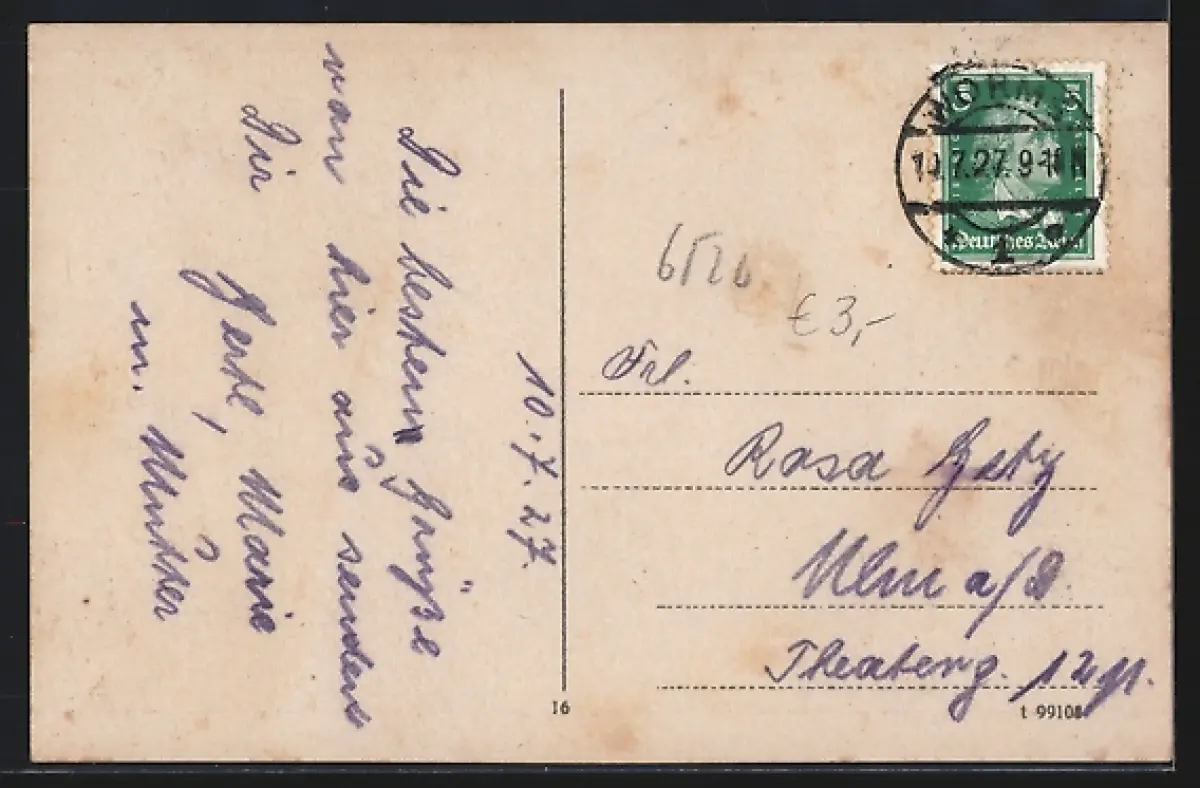 10.7.27.
Die besten Grüße
von hier aus senden
Dir Gertl, Marie
u. Mutter
WORMS
10.7.27. 9-10
1
5 5
Deutsches Reich
6526
€ 3,-
Frl.
Rosa
Ulm a/D.
Theaterg. 12
16
t 99108